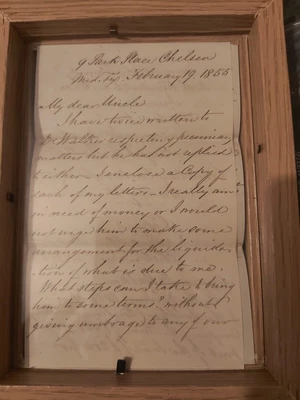 9 Park Place Chelsea
February 19 1855
My dear Uncle
I have twice written to
Walter respecting pecuniary
matters but he has not replied
to either. I enclose a Copy of
each of my letters. I really am
in need of money or I would
not urge him to make some
arrangement for the liquida-
tion of what is due to me.
What steps can I take to bring
him to some terms? without
giving umbrage to any of our